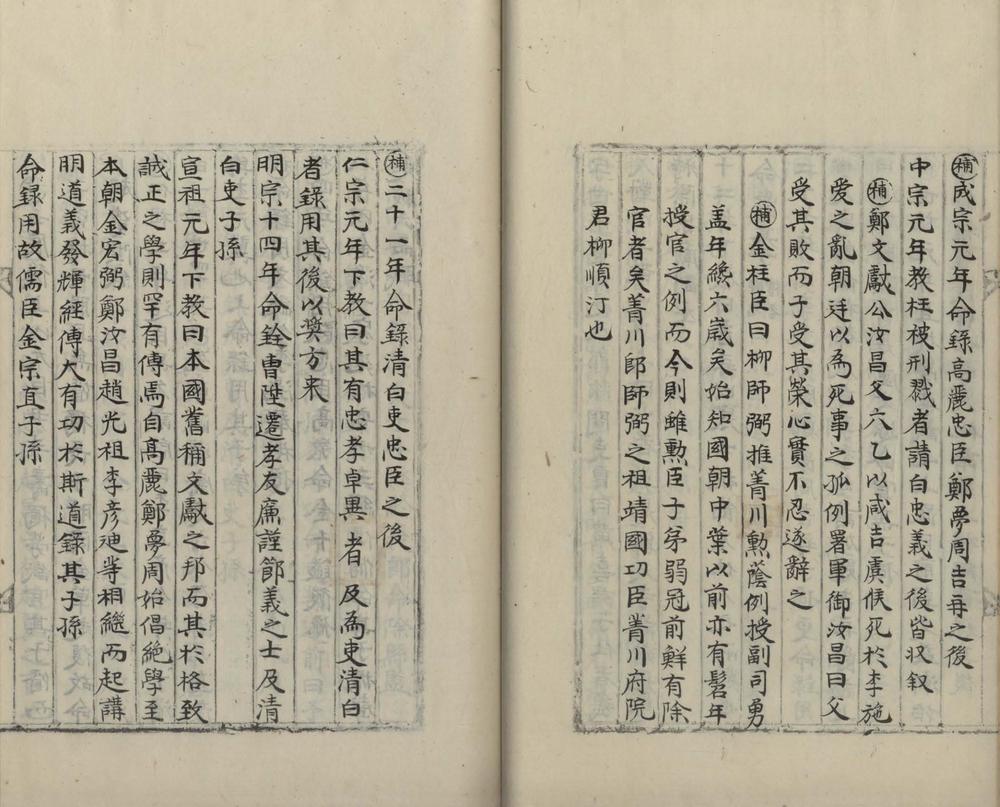 補成宗元年命錄高麗忠臣鄭夢周吉再之後
中宗元年教枉被刑戮者請白忠義之後皆収叙
補鄭文獻公汝昌父六乙以咸吉虞候死於李施
愛之亂朝廷以為死事之孤例署軍御汝昌曰父
受其敗而子受其榮心實不忍遂辭之
補金柱臣曰柳師弼推菁川勲蔭例授副司勇
盖年纔六歲矣始知國朝中葉以前亦有髫年
授官之例而今則雖勲臣子苐弱冠前鮮有除
官者矣菁川郎師弼之祖靖國功臣菁川府院
君柳順汀也
補二十一年命錄清白吏忠臣之後
仁宗元年下教曰其有忠孝卓異者及為吏清白
者錄用其後以奬方来
明宗十四年命銓曹陞遷孝友廉謹節義之士及清
白吏子孫
宣祖元年下教曰本國舊稱文獻之邦而其於格致
誠正之學則罕有傳焉自高麗鄭夢周始倡絶學至
本朝金宏弼鄭汝昌趙光祖李彦迪等相繼而起講
明道義發輝經傳大有功於斯道錄其子孫
命錄用故儒臣金宗直子孫